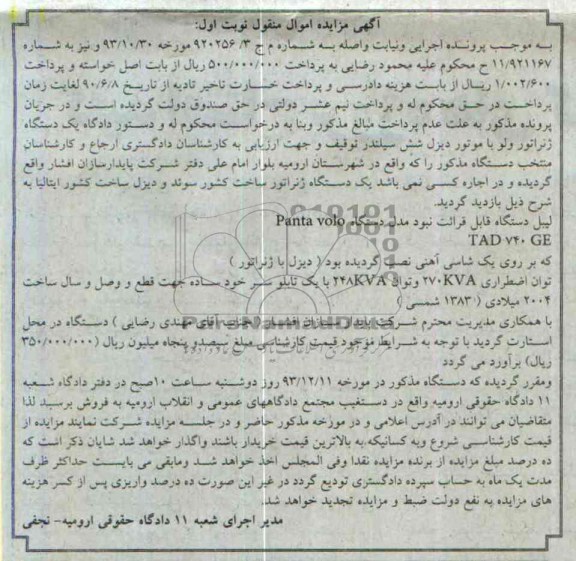 آگهی مزایده اموال منقول نوبت اول:
به موجب پرونده اجرایی ونیابت واصله به شماره م ج ۳/ ۹۲۰۲۵۶ مورخه ۹۳/۱۰/۳۰ و نیز به شماره
۱۱/۹۲۱۱۶۷ ح محکوم علیه محمود رضایی به پرداخت ۵۰۰/۰۰۰/۰۰۰ ریال از بابت اصل خواسته و پرداخت
۱/۰۰۲/۶۰۰ ریال از بابت هزینه دادرسی و پرداخت خسارت تاخیر تادیه از تاریخ ۹۰/۶/۸ لغایت زمان
پرداخت در حق محکوم له و پرداخت نیم عشر دولتی در حق صندوق دولت گردیده است و در جریان
پرونده مذکور به علت عدم پرداخت مبالغ مذکور وبنا به درخواست محکوم له و دستور دادگاه یک دستگاه
ژنراتور ولو با موتور دیزل شش سیلندر توقیف و جهت ارزیابی به کارشناسان دادگستری ارجاع و کارشناسان
منتخب دستگاه مذکور را که واقع در شهرستان ارومیه بلوار امام علی دفتر شرکت پایدارسازان افشار واقع
گردیده و در اجاره کسی نمی باشد یک دستگاه ژنراتور ساخت کشور سوئد و دیزل ساخت کشور ایتالیا به
شرح ذیل بازدید گردید.
لیبل دستگاه قابل قرائت نبود مدل دستگاه Panta volo
TAD ۷۴۰ GE
که بر روی یک شاسی آهنی نصب گردیده بود ( دیزل با ژنراتور )
توان اضطراری ۲۷۰KVA وتوان ۲۴۸KVA با یک تابلو سر خود ساده جهت قطع و وصل و سال ساخت
۲۰۰۴ میلادی (۱۳۸۳ شمسی )
با همکاری مدیریت محترم شرکت پایدار سازان افشار ( جناب آقای مهندی رضایی ) دستگاه در محل
استارت گردید با توجه به شرایط موجود قیمت کارشناسی مبلغ سیصدو پنجاه میلیون ریال (۳۵۰/۰۰۰/۰۰۰
ریال) برآورد می گردد
ومقرر گردیده که دستگاه مذکور در مورخه ۹۳/۱۲/۱۱ روز دوشنبه ساعت ۱۰صبح در دفتر دادگاه شعبه
۱۱ دادگاه حقوقی ارومیه واقع در دستغیب مجتمع دادگاههای عمومی و انقلاب ارومیه به فروش برسید لذا
متقاضیان می توانند در آدرس اعلامی و در موزخه مذکور حاضر و در جلسه مزایده شرکت نمایند مزایده از
قیمت کارشناسی شروع وبه کسانیکه به بالاترین قیمت خریدار باشند واگذار خواهد شد شایان ذکر است که
ده درصد مبلغ مزایده از برنده مزایده نقدا وفی المجلس اخذ خواهد شد ومابقی می بایست حداکثر ظرف
مدت یک ماه به حساب سپرده دادگستری تودیع گردد در غیر این صورت ده درصد واریزی پس از کسر هزینه
های مزایده به نفع دولت ضبط و مزایده تجدید خواهد شد.
مدیر اجرای شعبه ۱۱ دادگاه حقوقی ارومیه- نجفی